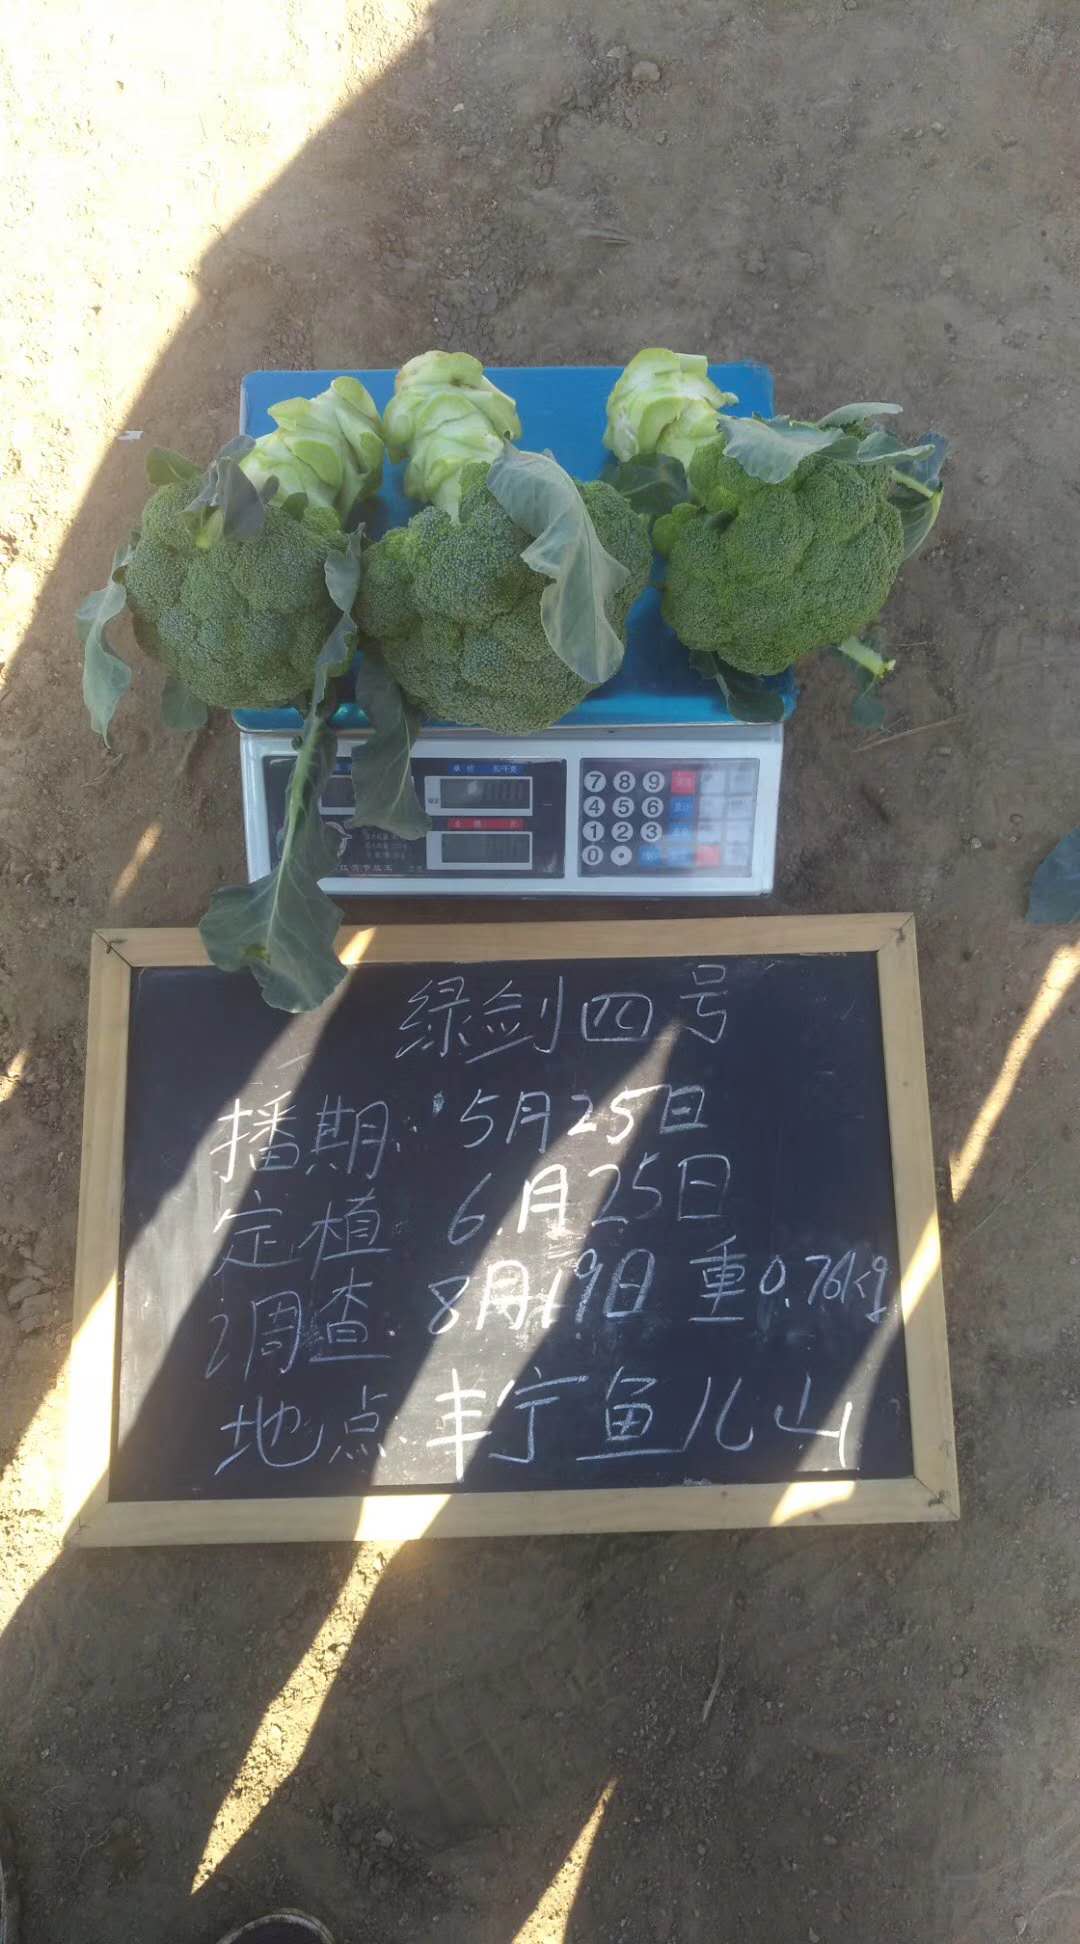 单价 元/千克
金额 元
7 8 9
4 5 6
1 2 3
0 .
绿剑四号
播期: 5月25日
定植 6.月25日
调查. 8月19日 重0.76kg
地点. 丰宁鱼儿山